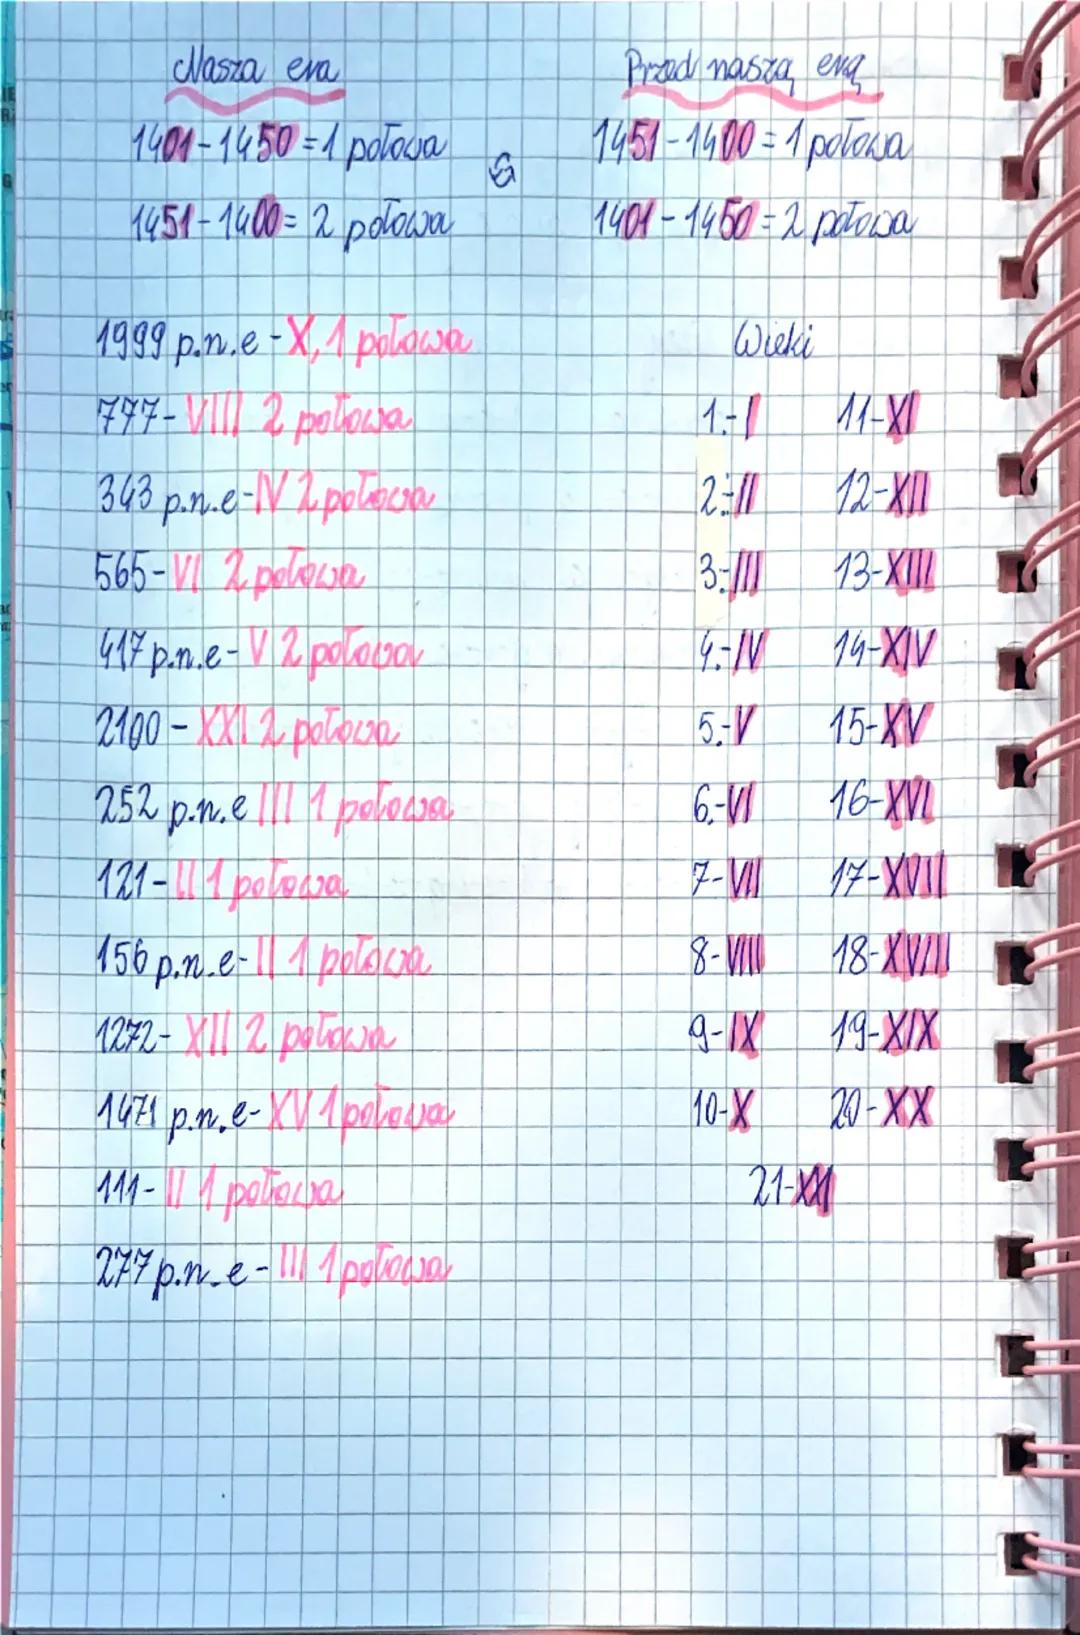 Nasza era
1401-1450=1 połowa
1451-1400= 2 połowa
Przed naszą erą
1451-1400=1 połowa
1401-1450=2 połowa
1999 p.n.e-X, 1 połowa
777-VIII 2 połowa
343 p.n.e-IV 2 połowa
565-VI 2 połowa
417 p.n.e-V 2 połowa
2100-XXI 2 połowa
252 p.n.e III 1 połowa
121-II 1 połowa
156 p.n.e-II 1 połowa
1272-XII 2 połowa
1471 p.n.e-XV 1 połowa
111-II 1 połowa
277 p.n.e-III 1 połowa
Wieki
1.-I 11-XI
2.-II 12-XII
3.-III 13-XIII
4.-IV 14-XIV
5.-V 15-XV
6.-VI 16-XVI
7-VII 17-XVII
8-VIII 18-XVIII
9-IX 19-XIX
10-X 20-XX
21-XXI